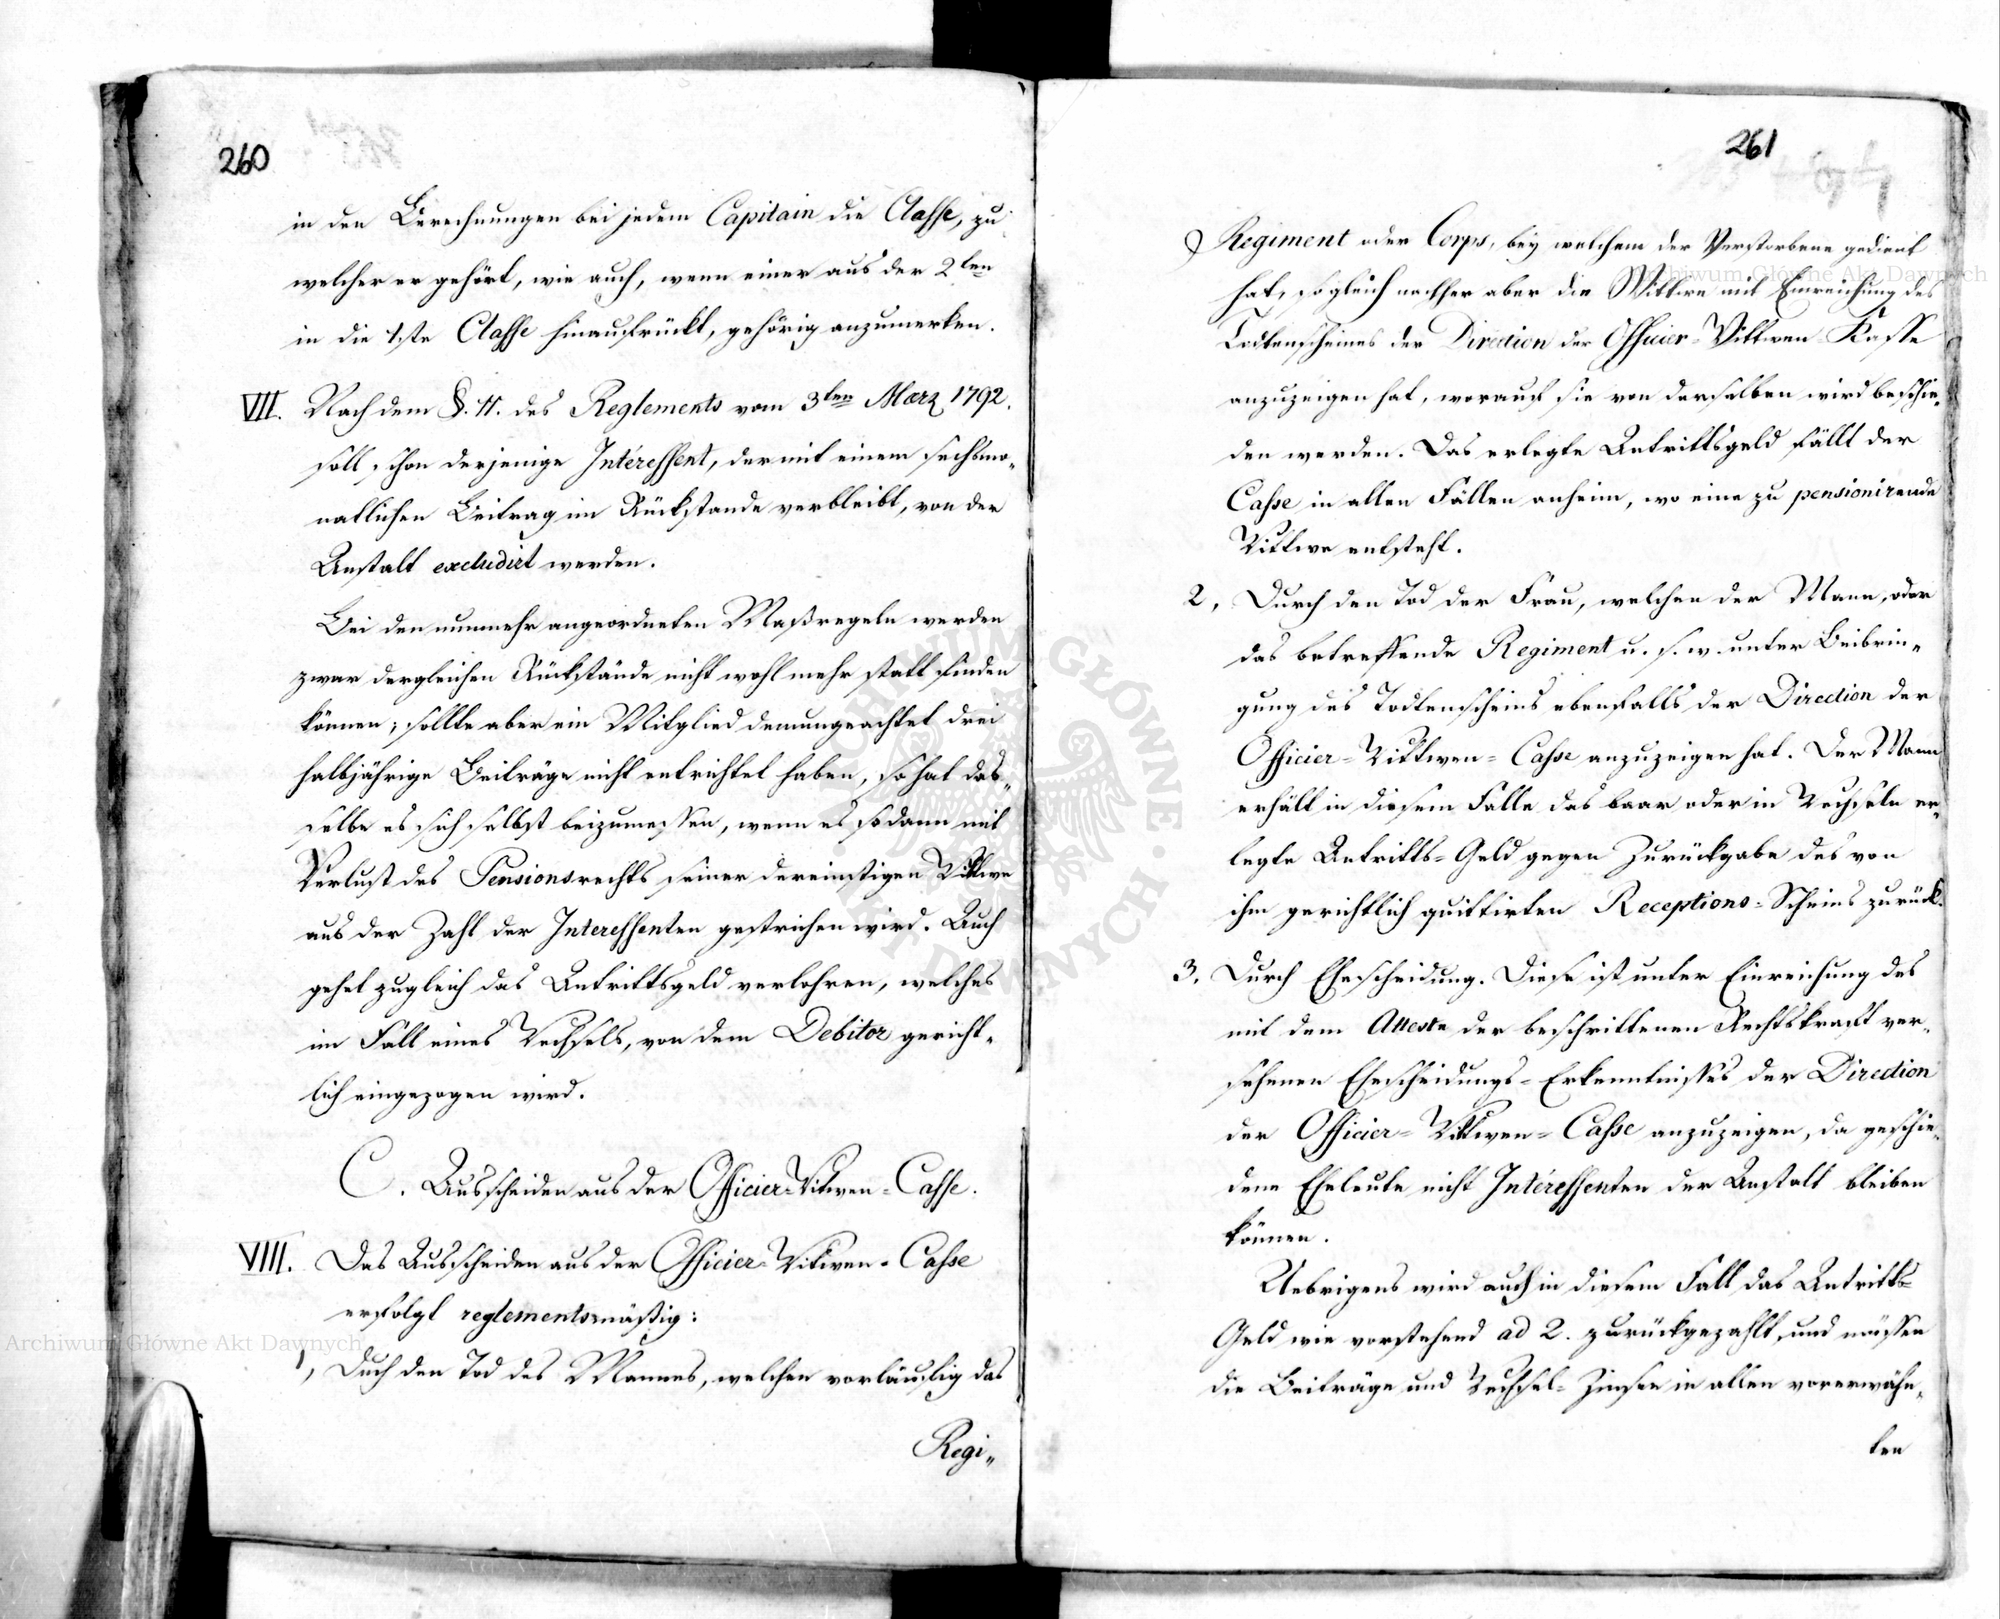 260
in den Berechnungen bei jedem Capitain die Classe, zu
welcher er gehört, wie auch, wenn einer aus der 2ten
in die 1ste Classe hinaufrückt, gehörig anzumerken.
VII. Nach dem §. 11. des Reglements vom 3ten Maerz 1792.
soll schon derjenige Intéressent, der mit einem sechsmo„
natlichen Beitrag im Rückstande verbleibt, von der
Anstalt excludirt werden.
Bei den nunmehr angeordneten Maßregeln werden
zwar dergleichen Rückstände nicht wohl mehr statt finden
können; sollte aber ein Mitglied demungeachtet drei
halbjährige Beiträge nicht entrichtet haben, so hat das„
selbe es sich selbst beizumessen, wenn es sodann mit
Verlust des Pensionsrechts seiner dereinstigen Wittwe
aus der Zahl der Interessenten gestrichen wird. Auch
gehet zugleich das Antrittsgeld verlohren, welches
im Fall eines Wechsels, von dem Debitor gericht„
lich eingezogen wird.
C. Ausscheiden aus der Officier-Wittwen-Casse.
VIII. Das Ausscheiden aus der Officier-Wittwen-Casse
erfolgt reglementsmäßig:
1, Duch den Tod des Mannes, welchen vorläufig das
Regi„
261
Regiment oder Corps, bey welchem der Verstorbene gedient
hat, sogleich nachher aber die Wittwe mit Einreichung des
Todtenscheines der Direction der Officier-Wittwen-Kasse
anzuzeigen hat, worauf sie von derselben wird beschie„
den werden. Das erlegte Antrittsgeld fällt der
Casse in allen Fällen anheim, wo eine zu pensionirende
Wittwe entsteht.
2, Durch den Tod der Frau, welchen der Mann, oder
das betreffende Regiment u. s. w. unter Beibrin„
gung des Todtenscheins ebenfalls der Direction der
Officier-Wittwen-Casse anzuzeigen hat. Der Mann
erhält in diesem Falle das baar oder in Wechseln er„
legte Antritts-Geld gegen Zurückgabe des von
ihm gerichtlich quittirten Receptions-Scheins zurück.
3. Durch Ehescheidung. Diese ist unter Einreichung des
mit dem Atteste der beschrittenen Rechtskraft ver„
sehenen Ehescheidungs-Erkenntnisses der Direction
der Officier-Wittwen-Casse anzuzeigen, da geschie„
dene Eheleute nicht Intéressenten der Anstalt bleiben
können.
Uebrigens wird auch in diesem Fall das Antritts-
Geld wie vorstehend ad 2. zurückgezahlt, und müssen
die Beiträge und Wechsel-Zinsen in allen vorerwähn„
ten
Archiwum Główne Akt Dawnych
Archiwum Główne Akt Dawnych
ARCHIWUM GŁÓWNE AKT DAWNYCH